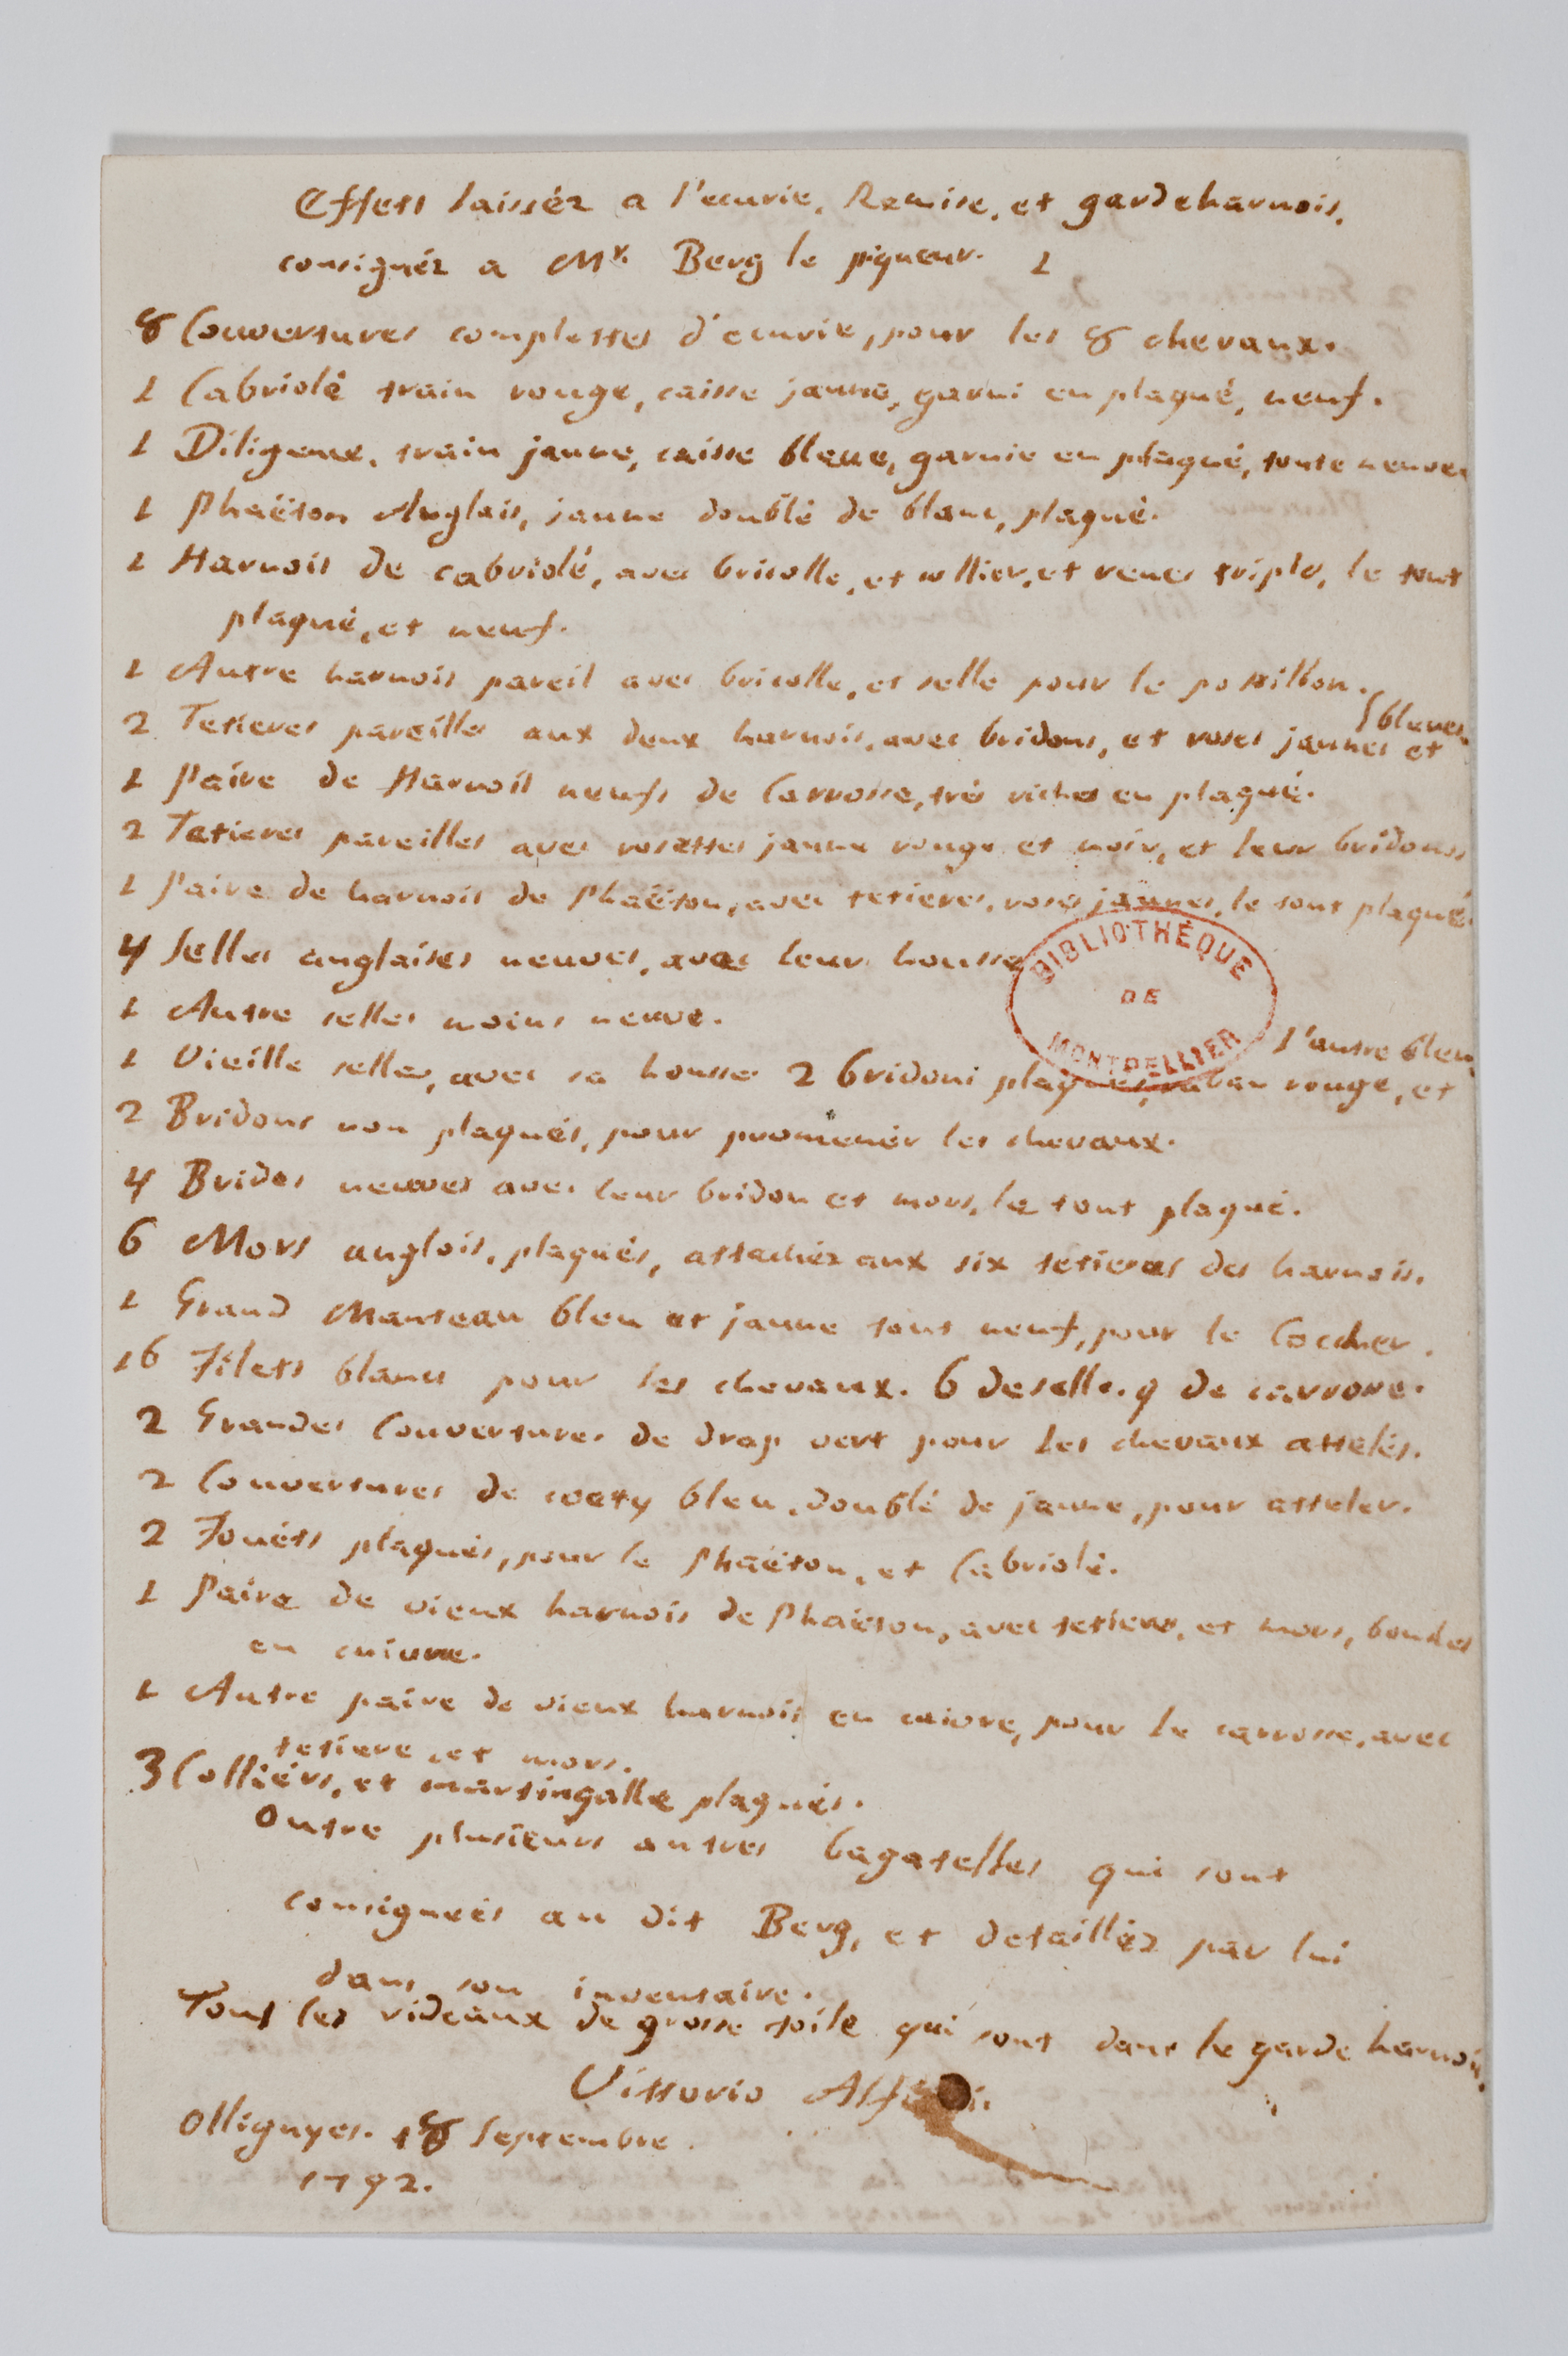 Effets laissés a l'ecurie, Remise, et gardeharnois,
consignés a Mr. Berg le piqueur. 1
8 Couvertures complettes d'ecurie, pour les 8 chevaux.
1 Cabriolé train rouge, caisse jaune, garni en plaqué, neuf.
1 Diligence, train jaune, caisse bleue, garnie en plaqué, toute neuve.
1 Phaëton Anglais, jaune doublé de blanc, plaqué.
1 Harnois de cabriolé, avec bricolle, et collier, et renes triples, le tout
plaqué, et neuf.
1 Autre harnois pareil avec bricolle, et selle pour le postillon.
{bleues.
2 Tetieres pareilles aux deux harnois, avec bridons, et roses jaunes et
1 Paire de Harnois neufs de Carrosse, très riches en plaqué.
2 Tetieres pareilles avec rosettes jaune rouge et noir, et leur bridons
1 Paire de harnois de Phaëton, avec tetieres, roses jaunes, le tout plaqué.
4 Selles anglaises neuves, avec leurs housses
BIBLIOTHÈQUE
DE
MONTPELLIER
1 Autre selle moins neuve.
l'autre bleu.
1 Vieille selle, avec sa housse 2 bridons plaqués, ruban rouge, et
2 Bridons non plaqués, pour promenér les chevaux.
4 Brides neuves avec leur bridon et mors, le tout plaqué.
6 Mors anglois, plaqués, attachés aux six tetieres des harnois.
1 Grand Manteau bleu et jaune tout neuf, pour le Cocher.
16 Filets blancs pour les chevaux. 6 de selle. 9 de carrosse.
2 Grandes Couvertures de drap vert pour les chevaux attelés.
2 Couvertures de bleu, doublé de jaune, pour atteler.
2 Fouéts plaqués, pour le Phaëton, et Cabriolé.
1 Paire de vieux harnois de Phaëton, avec tetieres, et mors, boucles
en cuivre.
1 Autre paire de vieux harnois en cuivre, pour le carrosse, avec
tetiere et mors.
3 Colliérs, et martingalle plaqués.
Outre plusieurs autres bagatelles qui sont
consignées au dit Berg, et detaillés par lui
dans son inventaire.
Tous les rideaux de grosse toile qui sont dans le garde harnois.
Vittorio Alfieri.
Ollignyes. 18 Septembre.
1792.